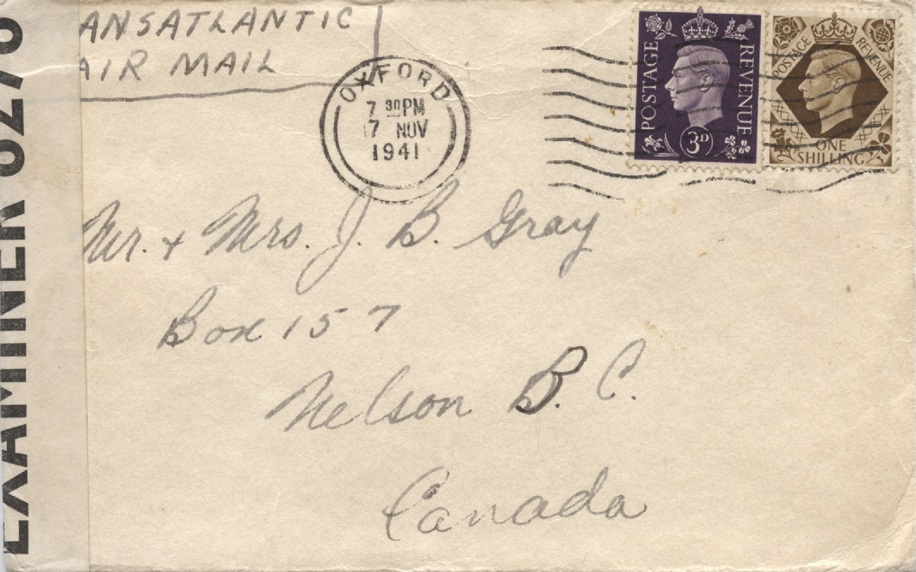 ANSATLANTIC
AIR MAIL
OXFORD
7 30PM
17 NOV
1941
POSTAGE REVENUE
3D
POSTAGE REVENUE
ONE
SHILLING
EXAMINER
Mr. + Mrs. J. B. Gray
Box 157
Nelson B. C.
Canada